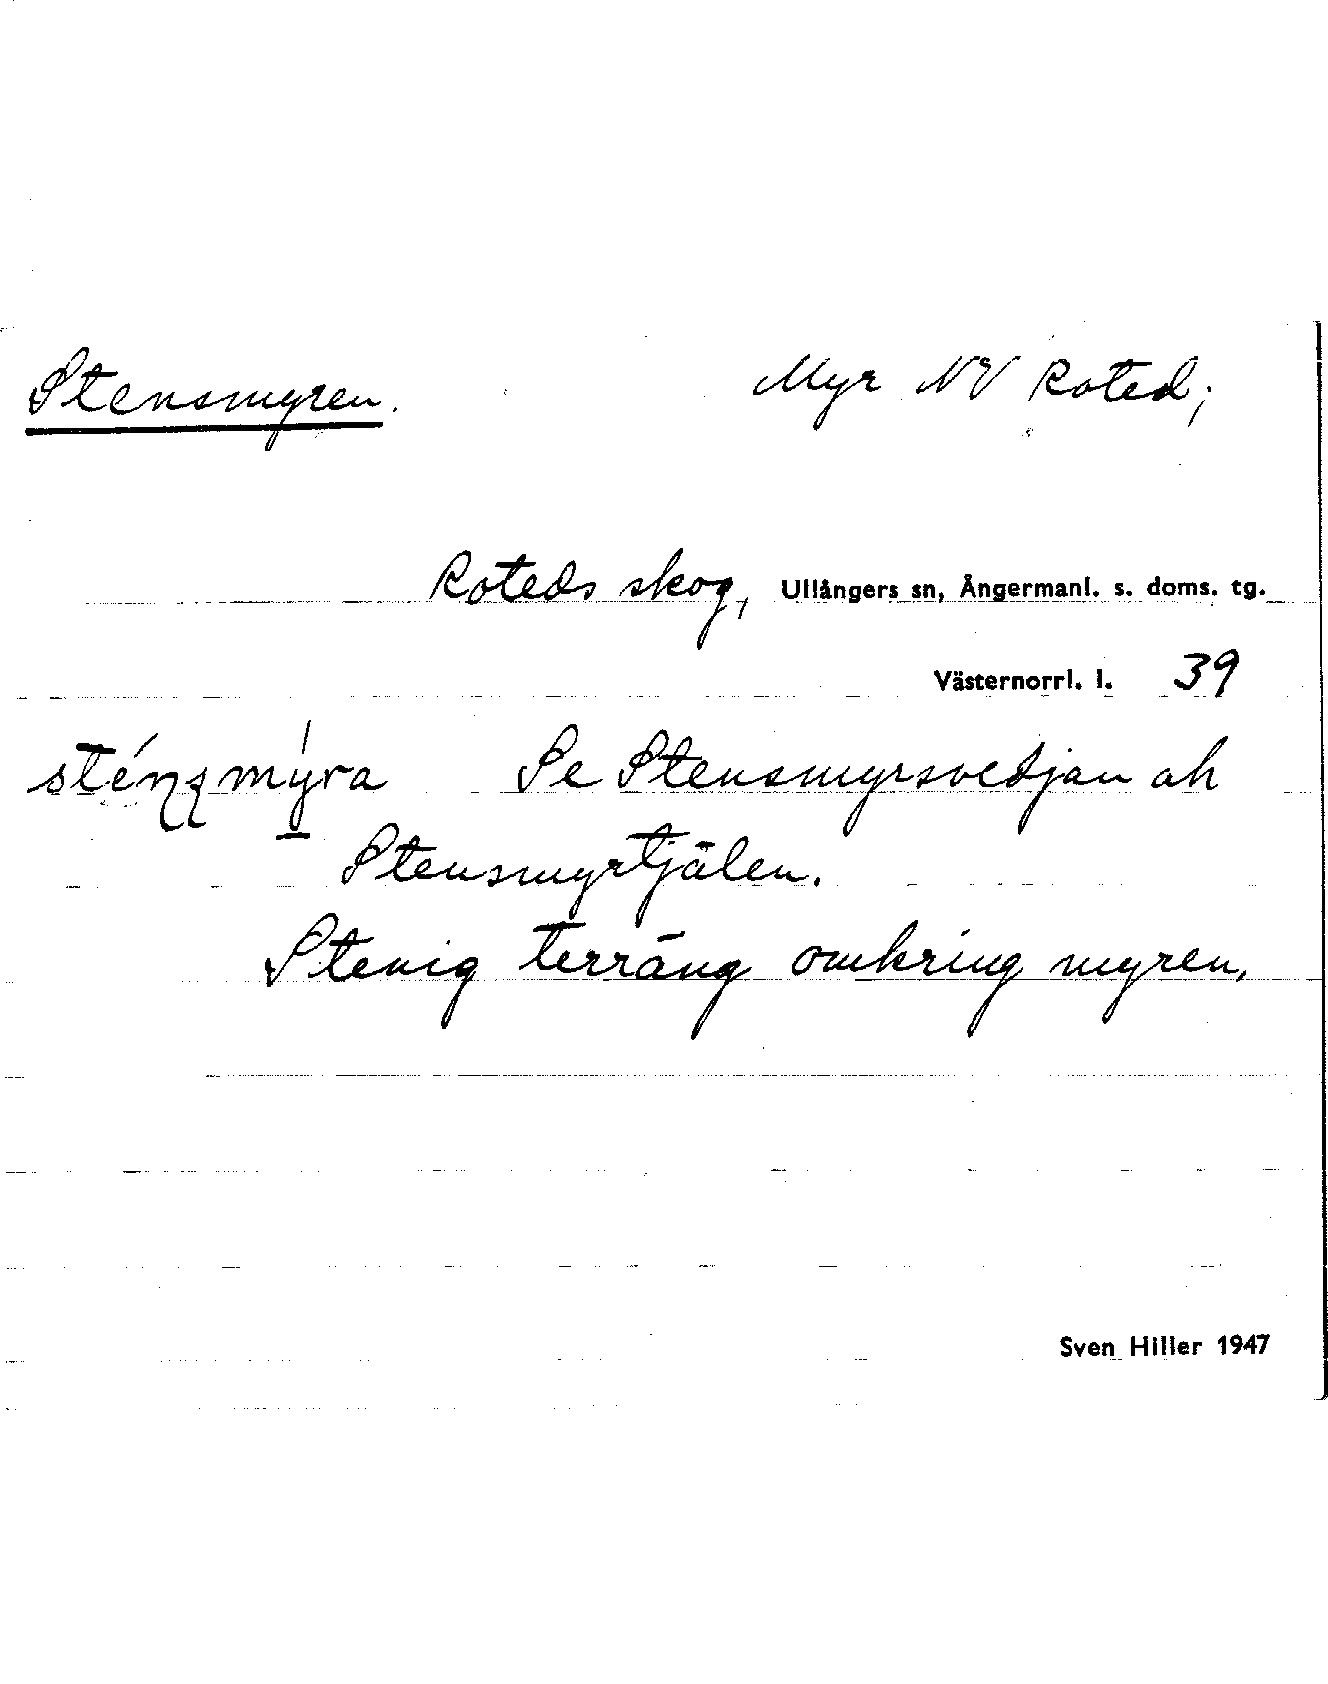 Stensmyren. Myr NV Roted;
Roteds skog, Ullångers sn, Ångermanl. s. doms. tg.
Västernorrl. l. 39
Se Stensmyrsvedjan ah
Stensmyrtjälen.
Stenig terräng omkring myren,
Sven Hiller 1947